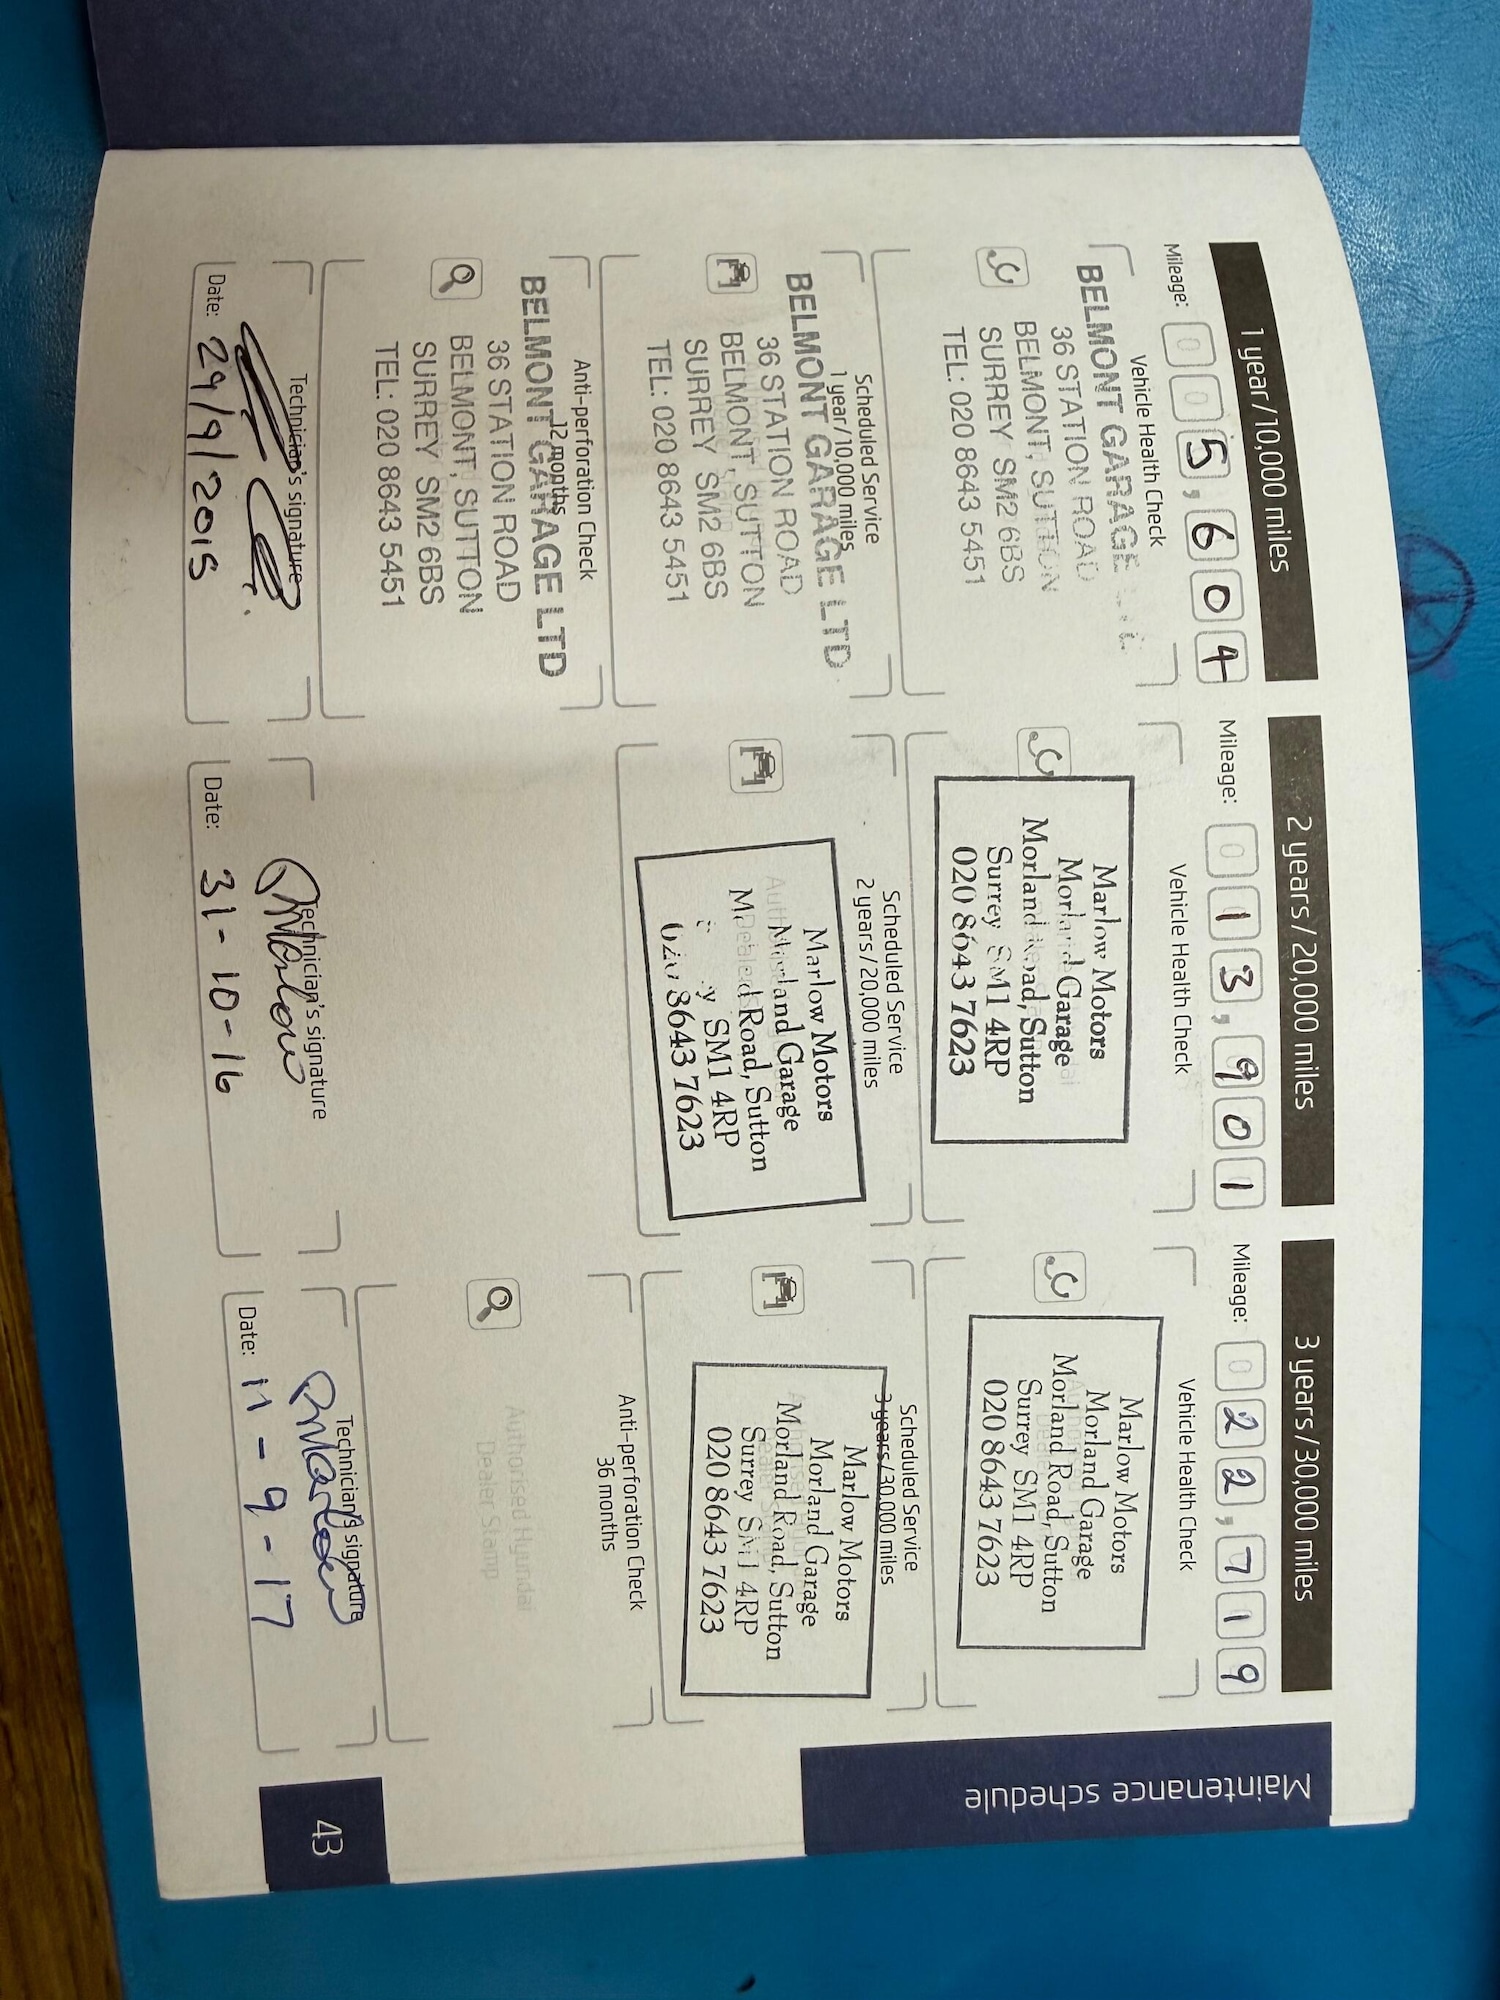 Maintenance schedule
1 year/10,000 miles
Mileage: 0 0 5, 6 0 4
Vehicle Health Check
BELMONT GARAGE
36 STATION ROAD
BELMONT, SUTTON
SURREY SM2 6BS
TEL: 020 8643 5451
Scheduled Service
1 year/10,000 miles
BELMONT GARAGE LTD
36 STATION ROAD
BELMONT, SUTTON
SURREY SM2 6BS
TEL: 020 8643 5451
Anti-perforation Check
12 months
BELMONT GARAGE LTD
36 STATION ROAD
BELMONT, SUTTON
SURREY SM2 6BS
TEL: 020 8643 5451
Technician's signature
Date: 29/9/2015
2 years/20,000 miles
Mileage: 0 1 3, 9 0 1
Vehicle Health Check
Marlow Motors
Morland Garage
Morland Road, Sutton
Surrey SM1 4RP
020 8643 7623
Scheduled Service
2 years/20,000 miles
Marlow Motors
Morland Garage
Road, Sutton
SM1 4RP
020 8643 7623
Technician's signature
Marlow
Date: 31-10-16
3 years/30,000 miles
Mileage: 0 2 2, 7 1 9
Vehicle Health Check
Marlow Motors
Morland Garage
Morland Road, Sutton
Surrey SM1 4RP
020 8643 7623
Scheduled Service
3 years/30,000 miles
Marlow Motors
Morland Garage
Morland Road, Sutton
Surrey SM1 4RP
020 8643 7623
Anti-perforation Check
36 months
Authorised Hyundai
Dealer Stamp
Technician's signature
Marlow
Date: 11-9-17
43